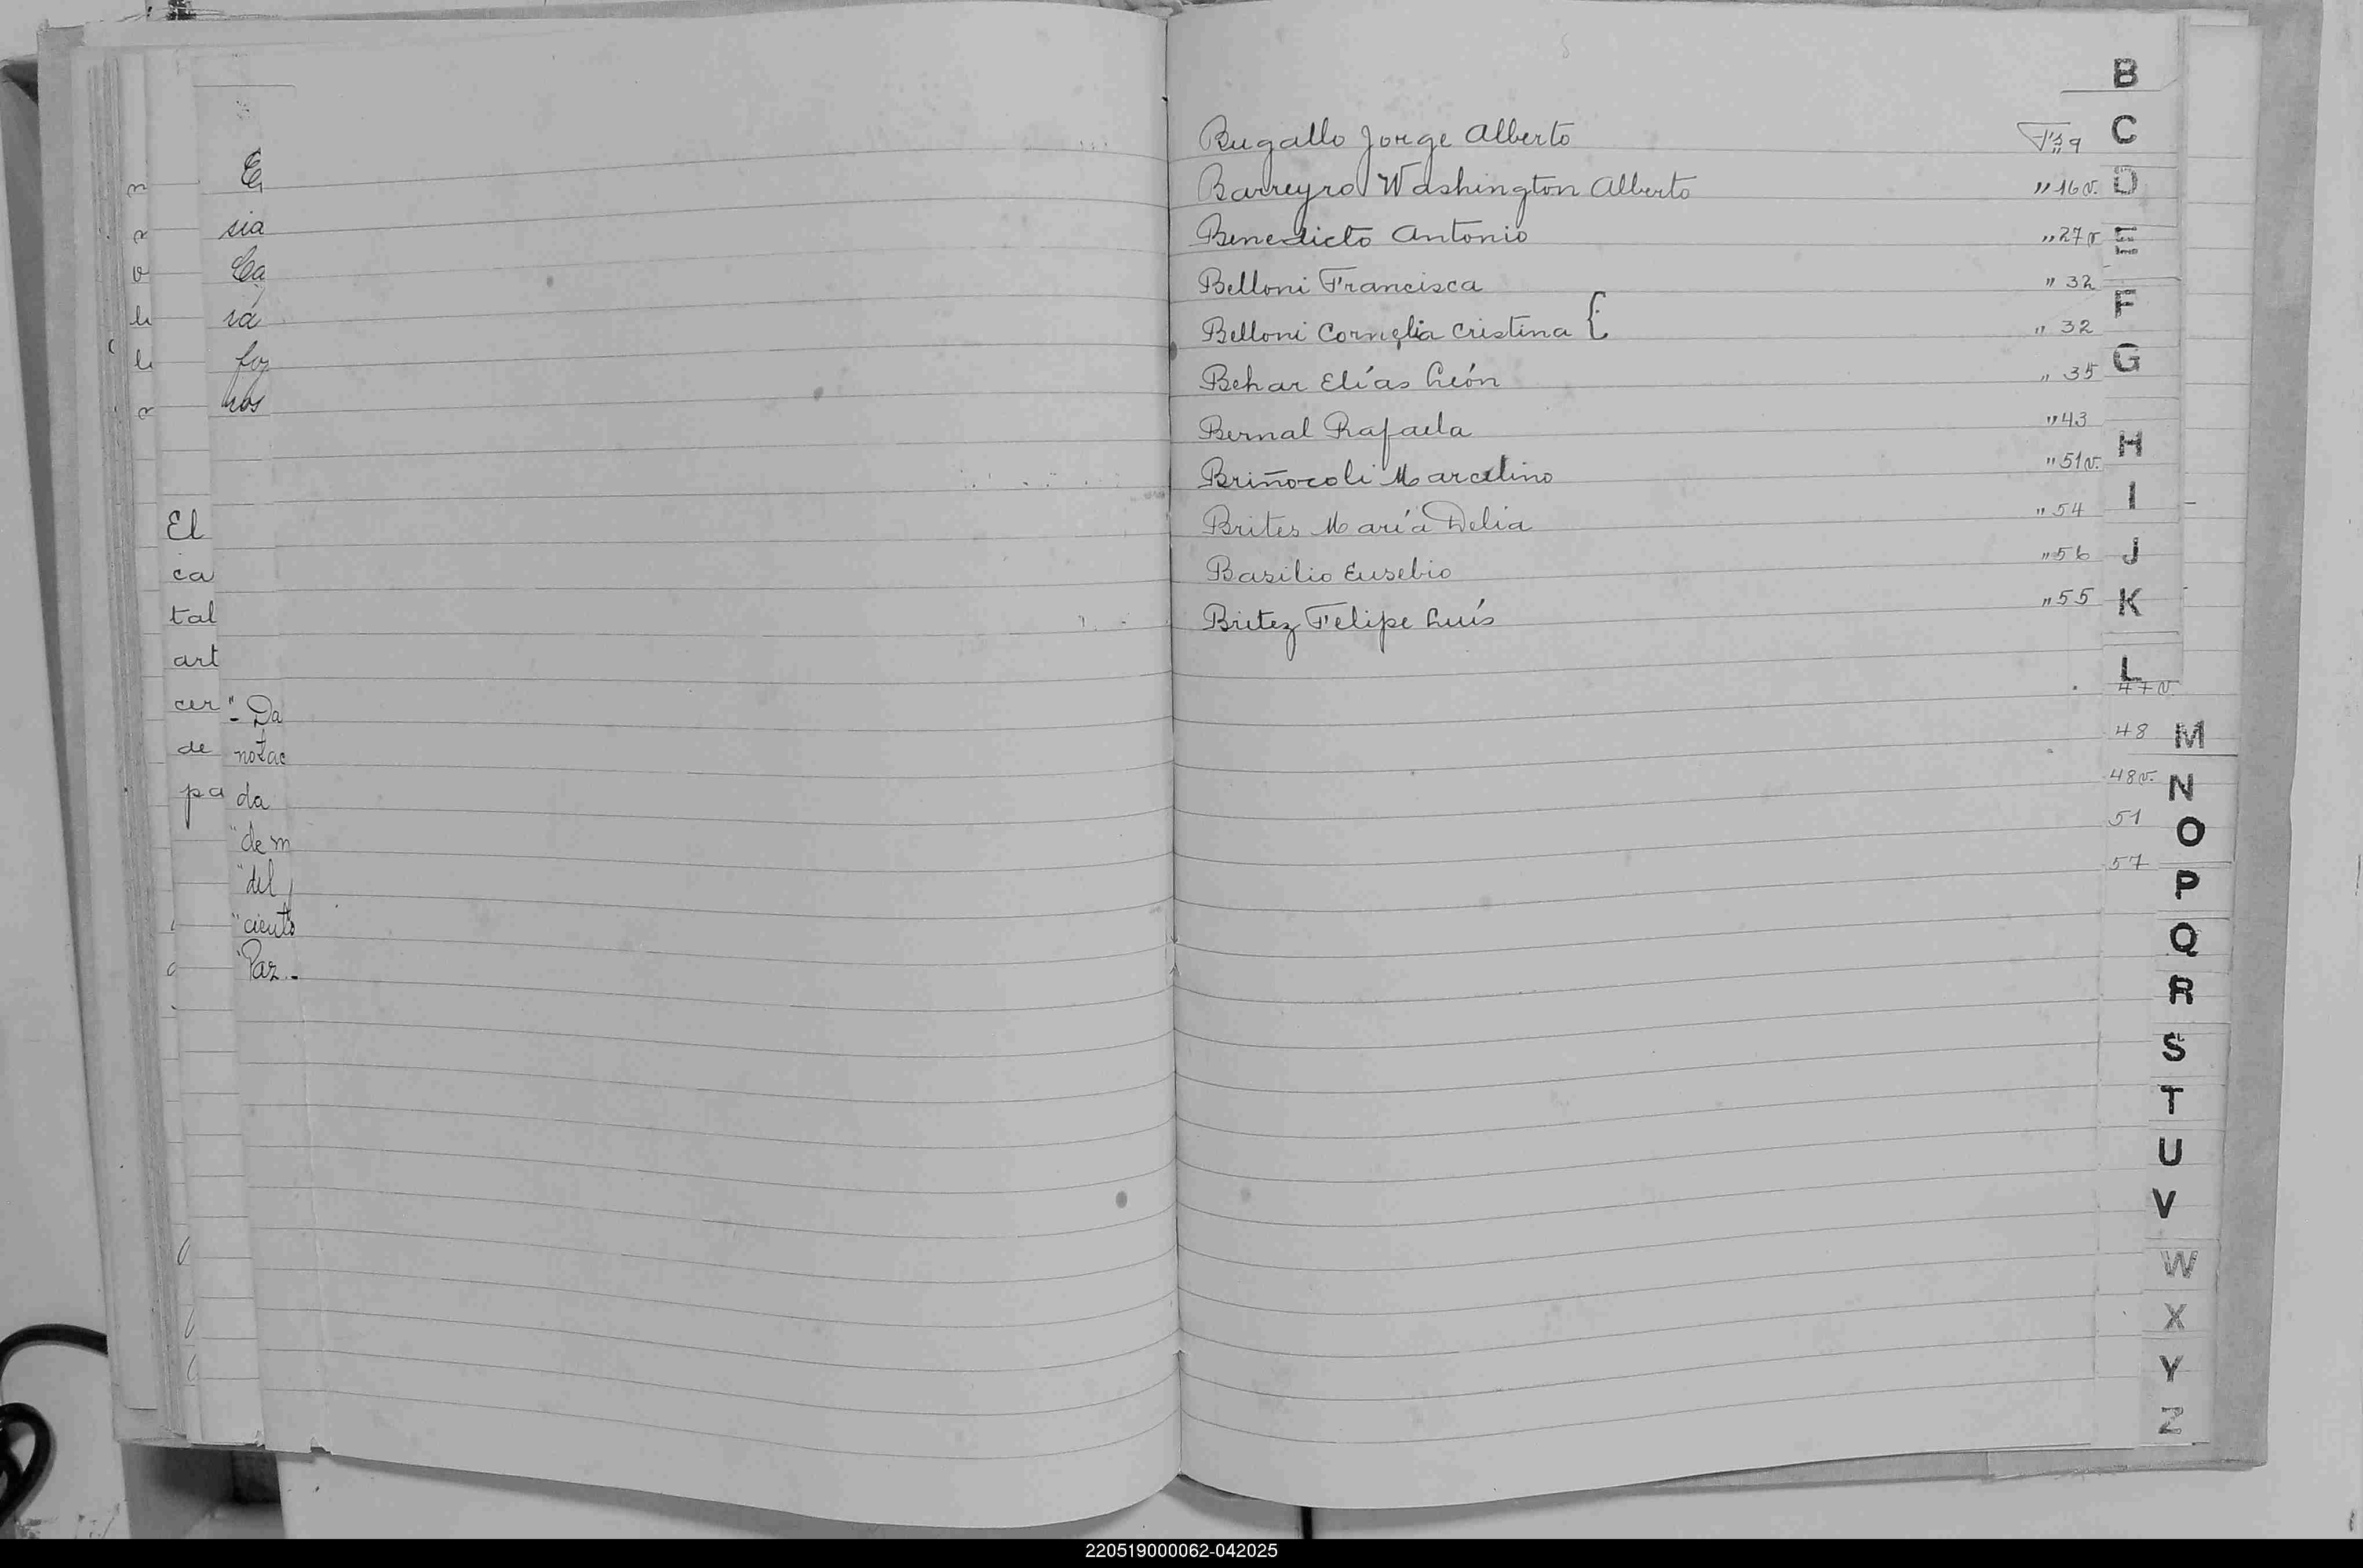 E
sia
Ca
rá
foj
ros
El
ca
tal
art
cer
de
pa
"- Da
notac
da
"de m
"del
"ciento
"Paz.-
Bugallo Jorge Alberto Fs 9
Barreyro Washington Alberto "16v.
Benedicto Antonio "27v
Belloni Francisca " 32
Belloni Cornelia Cristina { " 32
Behar Elías León " 35
Bernal Rafaela "43
Briñocoli Marcelino "51v.
Brites María Delia "54
Basilio Eusebio "56
Britez Felipe Luís "55
47v.
48
48v.
51
57
B
C
D
E
F
G
H
I
J
K
L
M
N
O
P
Q
R
S
T
U
V
W
X
Y
Z
220519000062-042025